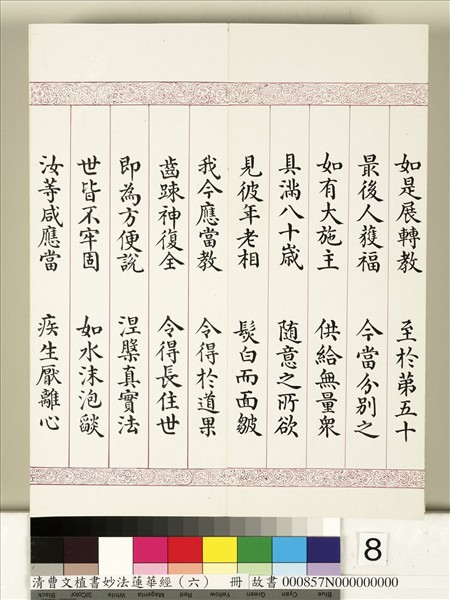 如是展轉教　至於第五十
最後人獲福　今當分別之
如有大施主　供給無量衆
具滿八十歲　随意之所欲
見彼年老相　髮白而面皺
我今應當教　令得於道果
齒踈神復全　令得長住世
即為方便說　涅槃真實法
世皆不牢固　如水沫泡燄
汝等咸應當　疾生厭離心
8
Blue Cyan Green Yellow Red Magenta White 3/Color Black
清曹文植書妙法蓮華經（六）　冊 故書 000857N000000000